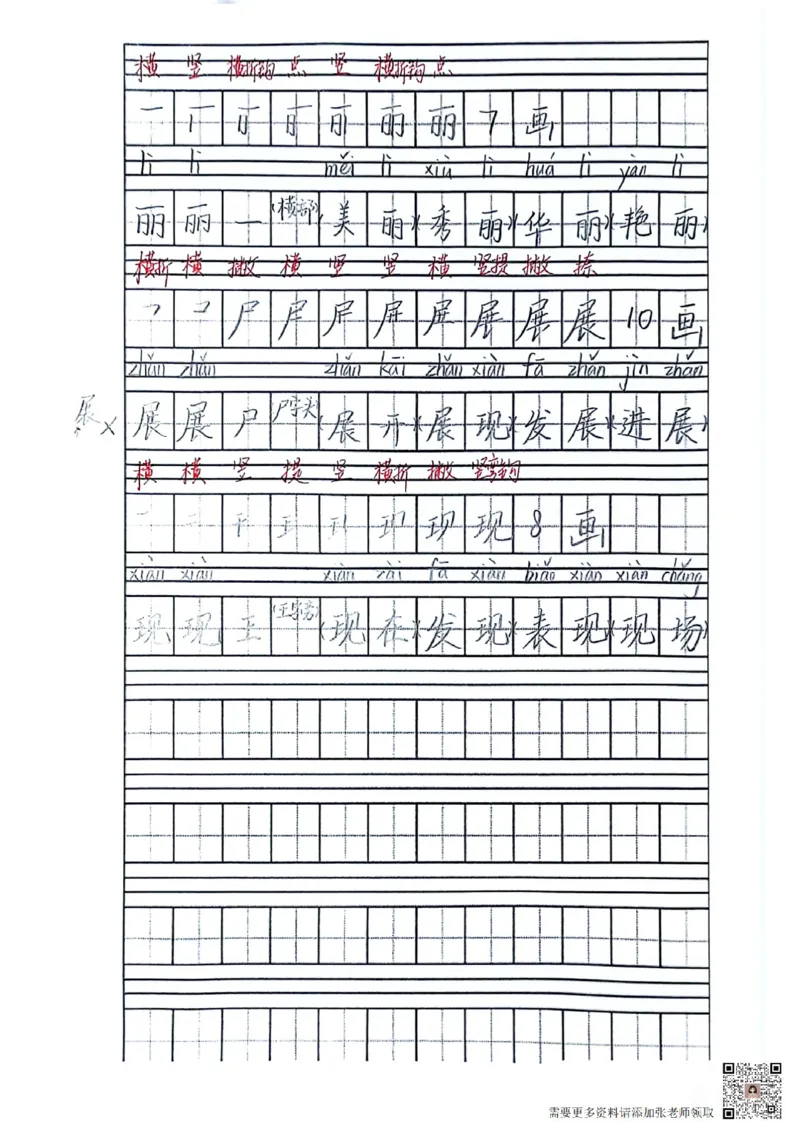 横 竖 横折钩 点 竖 横折钩 点
丽 丽 丽 7 画
lì lì měi lì xiù lì huá lì yàn lì
丽 丽 一 (横部) (美 丽)(秀 丽)(华 丽)(艳 丽)
横折 横 撇 横 竖 竖 横 竖提 撇 捺
尸 屏 展 展 展 10 画
zhǎn zhǎn zhǎn kāi zhǎn xiàn fā zhǎn jìn zhǎn
展 × 展 展 户 (尸字头) (展 开)(展 现)(发 展)(进 展)
横 横 竖 提 竖 横折 撇 竖弯钩
王 现 现 8 画
xiàn xiàn xiàn zài fā xiàn biǎo xiàn xiàn chǎng
现 现 王 (王字旁) (现 在)(发 现)(表 现)(现 场)
需要更多资料请添加张老师领取